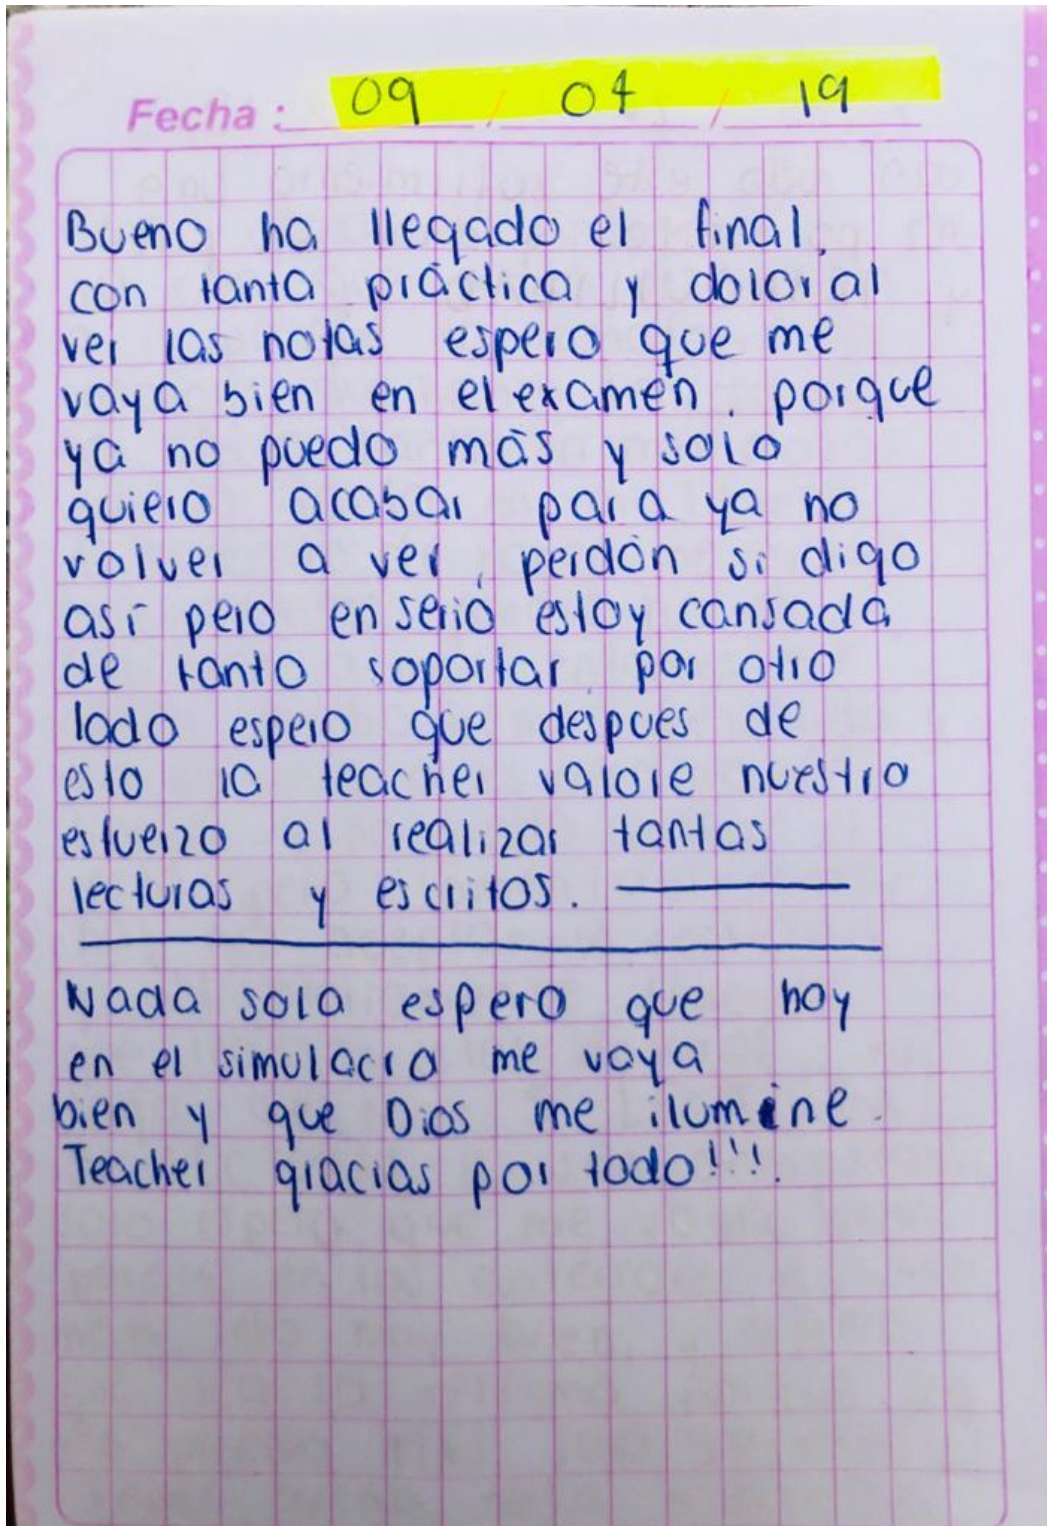 Fecha : 09 / 04 / 19
Bueno ha llegado el final,
con tanta práctica y dolor al
ver las notas espero que me
vaya bien en el examén. porque
ya no puedo más y solo
quiero acabar para ya no
volver a ver, perdón si digo
así pero en serio estoy cansada
de tanto soportar, por otro
lado espero que despues de
esto la teacher valore nuestro
esfuerzo al realizar tantas
lecturas y escritos.
Nada solo espero que hoy
en el simulacro me vaya
bien y que Dios me ilumine.
Teacher gracias por todo!!!.